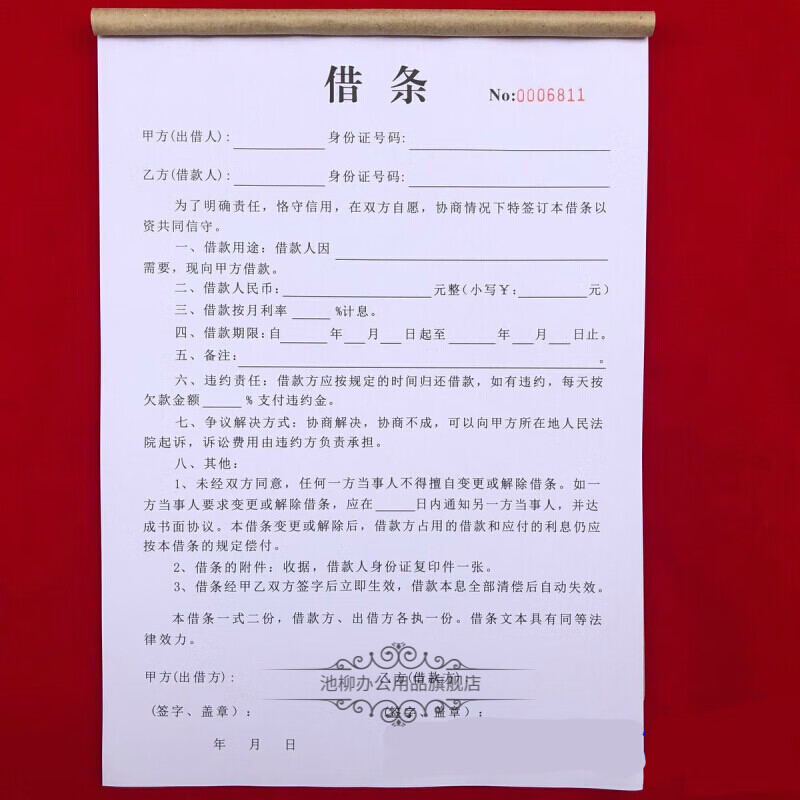 借条
No:0006811
甲方(出借人): 身份证号码:
乙方(借款人): 身份证号码:
为了明确责任，恪守信用，在双方自愿，协商情况下特签订本借条以
资共同信守。
一、借款用途：借款人因
需要，现向甲方借款。
二、借款人民币：元整(小写￥：元)
三、借款按月利率 %计息。
四、借款期限：自 年 月 日起至 年 月 日止。
五、备注：。
六、违约责任：借款方应按规定的时间归还借款，如有违约，每天按
欠款金额 %支付违约金。
七、争议解决方式：协商解决，协商不成，可以向甲方所在地人民法
院起诉，诉讼费用由违约方负责承担。
八、其他：
1、未经双方同意，任何一方当事人不得擅自变更或解除借条。如一
方当事人要求变更或解除借条，应在 日内通知另一方当事人，并达
成书面协议。本借条变更或解除后，借款方占用的借款和应付的利息仍应
按本借条的规定偿付。
2、借条的附件：收据，借款人身份证复印件一张。
3、借条经甲乙双方签字后立即生效，借款本息全部清偿后自动失效。
本借条一式二份，借款方、出借方各执一份。借条文本具有同等法
律效力。
甲方(出借方)： 乙方(借款方)
池柳办公用品旗舰店
(签字、盖章)： (签字、盖章)：
年 月 日